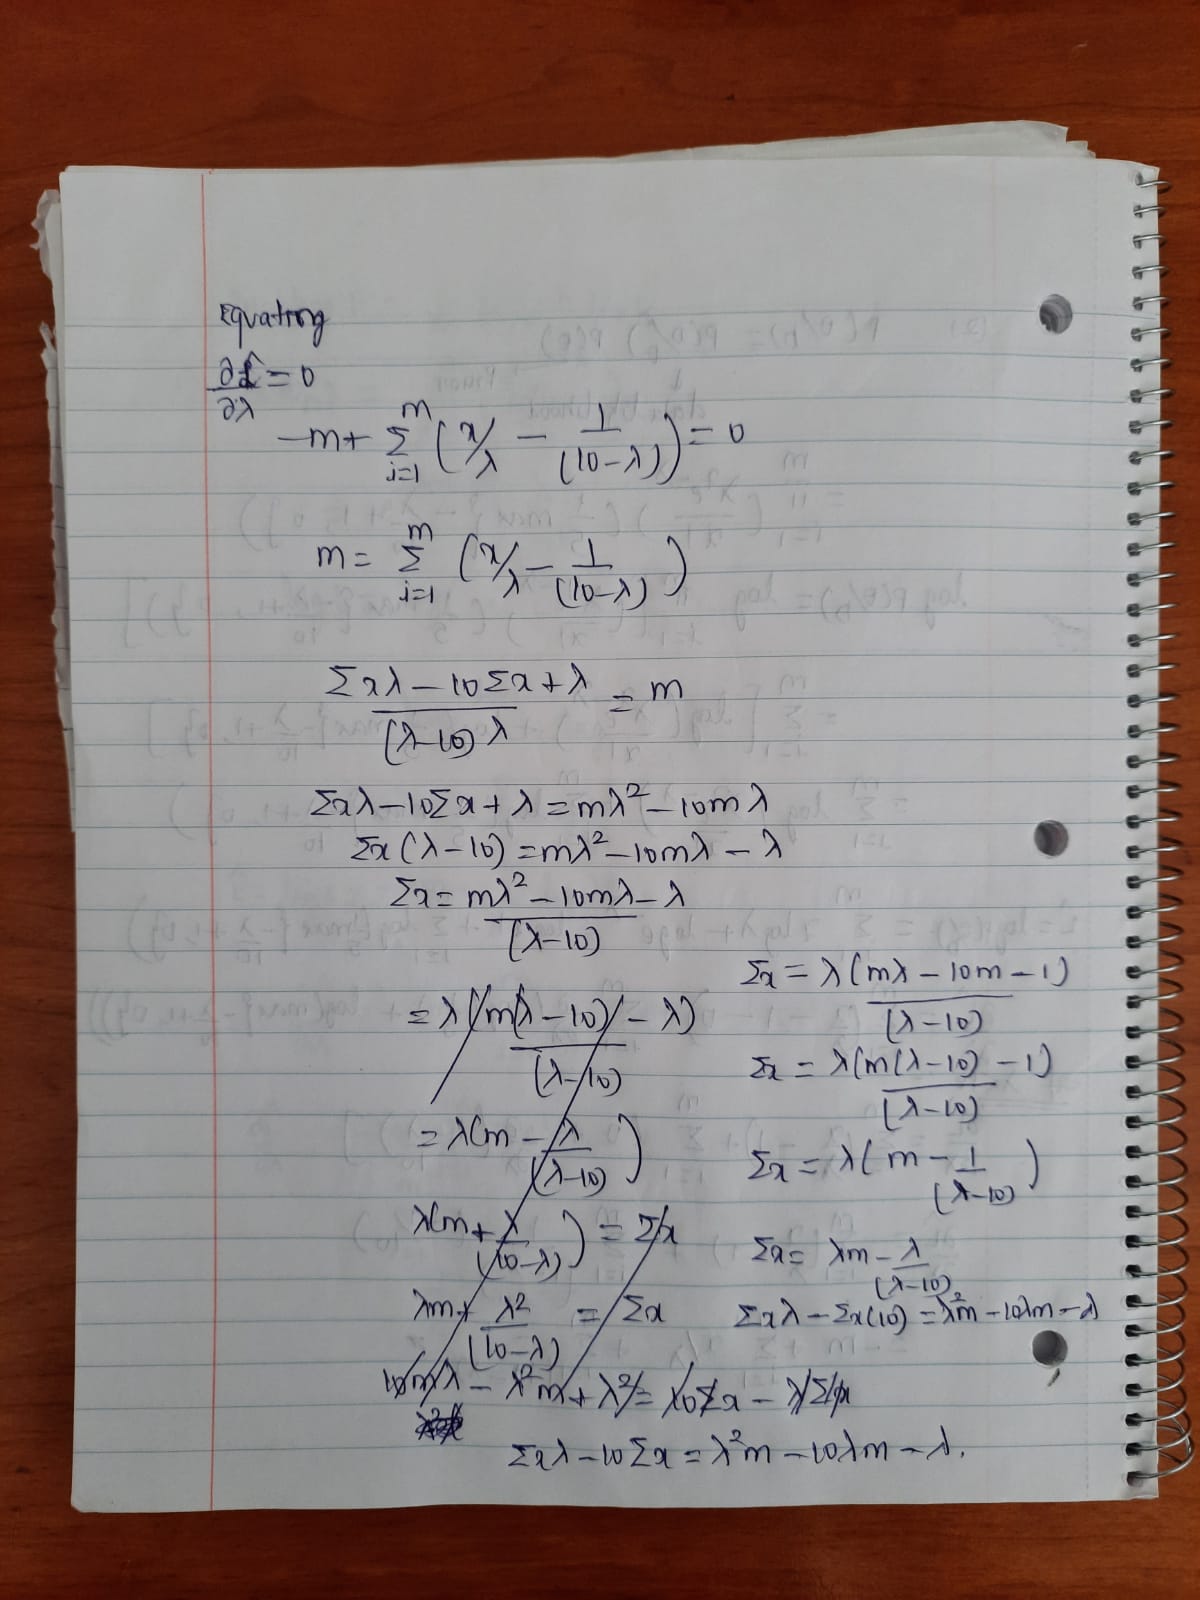 Equating
∂L̂/∂λ = 0
-m + Σ_{i=1}^{m} (x/λ - 1/(10-λ)) = 0
m = Σ_{i=1}^{m} (x/λ - 1/(10-λ))
(Σxλ - 10Σx + λ)/((λ-10)λ) = m
Σxλ - 10Σx + λ = mλ² - 10mλ
Σx(λ-10) = mλ² - 10mλ - λ
Σx = (mλ² - 10mλ - λ)/(λ-10)
= λ(m(λ-10) - λ)/(λ-10)
= λ(m - λ/(λ-10))
λ(m + λ/(10-λ)) = Σx
λm + λ²/(10-λ) = Σx
10mλ - λ²m + λ² = 10Σx - λΣx
Σx = λ(mλ - 10m - 1)/(λ-10)
Σx = λ(m(λ-10) - 1)/(λ-10)
Σx = λ(m - 1/(λ-10))
Σx = λm - λ/(λ-10)
Σxλ - Σx(10) = λ²m - 10λm - λ
Σxλ - 10Σx = λ²m - 10λm - λ.